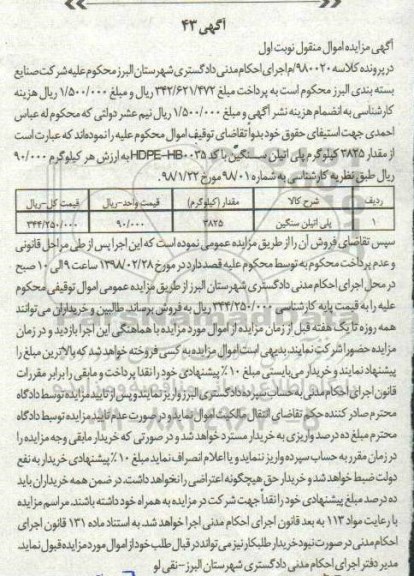 آگهی ۴۳
آگهی مزایده اموال منقول نوبت اول
در پرونده کلاسه ۹۸۰۰۲۰/م اجرای احکام مدنی دادگستری شهرستان البرز محکوم علیه شرکت صنایع
بسته بندی البرز محکوم است به پرداخت مبلغ ۳۴۲/۶۲۱/۴۷۲ ریال و مبلغ ۱/۵۰۰/۰۰۰ ریال هزینه
کارشناسی به انضمام هزینه نشر آگهی و مبلغ ۱/۵۰۰/۰۰۰ ریال نیم عشر دولتی که محکوم له عباس
احمدی جهت استیفای حقوق خود بدوا تقاضای توقیف اموال محکوم علیه را نموده اند که عبارت است
از مقدار ۳۸۲۵ کیلوگرم پلی اتیلن سنگین با کد HDPE-HB۰۰۳۵ به ارزش هر کیلوگرم ۹۰/۰۰۰
ریال طبق نظریه کارشناسی به شماره ۹۸/۰۱ مورخ ۹۸/۱/۲۲.
ردیف شرح کالا مقدار (کیلوگرم) قیمت واحد-ریال قیمت کل-ریال
۱ پلی اتیلن سنگین ۳۸۲۵ ۹۰/۰۰۰ ۳۴۴/۲۵۰/۰۰۰
سپس تقاضای فروش آن را از طریق مزایده عمومی نموده است که این اجرا پس از طی مراحل قانونی
و عدم پرداخت محکوم به توسط محکوم علیه قصد دارد در مورخ ۱۳۹۸/۰۲/۲۸ ساعت ۹ الی ۱۰ صبح
در محل اجرای احکام مدنی دادگستری شهرستان البرز از طریق مزایده عمومی اموال توقیفی محکوم
علیه را به قیمت پایه کارشناسی ۳۴۴/۲۵۰/۰۰۰ ریال به فروش برساند. طالبین و خریداران می توانند
همه روزه تا یک هفته قبل از زمان مزایده از اموال مورد مزایده با هماهنگی این اجرا بازدید و در زمان
مزایده حضورا شرکت نمایند. بدیهی است اموال مزایده به کسی فروخته خواهد شد که بالاترین مبلغ را
پیشنهاد نمایند و خریدار می بایستی مبلغ ۱۰٪ پیشنهادی خود را نقدا پرداخت و مابقی را برابر مقررات
قانون اجرای احکام مدنی به حساب سپرده دادگستری البرز واریز نمایند و پس از تایید مزایده توسط دادگاه
محترم صادر کننده حکم تقاضای انتقال مالکیت اموال نماید و در صورت عدم تایید مزایده توسط دادگاه
محترم مبلغ ده درصد واریزی به خریدار مسترد خواهد شد و در صورتی که خریدار مابقی وجه مزایده را
در زمان مقرر به حساب سپرده واریز ننماید و یا اعلام انصراف نماید مبلغ ۱۰٪ پیشنهادی خریدار به نفع
دولت ضبط خواهد شد و خریدار حق هیچگونه اعتراضی را نخواهد داشت. در ضمن همه خریداران باید
ده درصد مبلغ پیشنهادی خود را نقداً جهت شرکت در مزایده به همراه خود داشته باشند. مراسم مزایده
با رعایت مواد ۱۱۳ به بعد قانون اجرای احکام مدنی اجرا خواهد شد. به استناد ماده ۱۳۱ قانون اجرای
احکام مدنی در صورت نبود خریدار طلبکار نیز می تواند در قبال طلب خود از اموال مورد مزایده قبول نماید.
مدیر دفتر اجرای احکام مدنی دادگستری شهرستان البرز- نقی لو